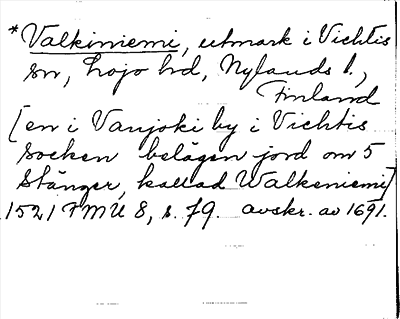 *Valkiniemi, utmark i Vichtis
sn, Lojo hd, Nylands l.,
Finland
[en i Vanjoki by i Vichtis
socken belägen jord om 5
stänger, kallad Walkeniemi]
1521 FMU 8, s. 79. avskr. av 1691.